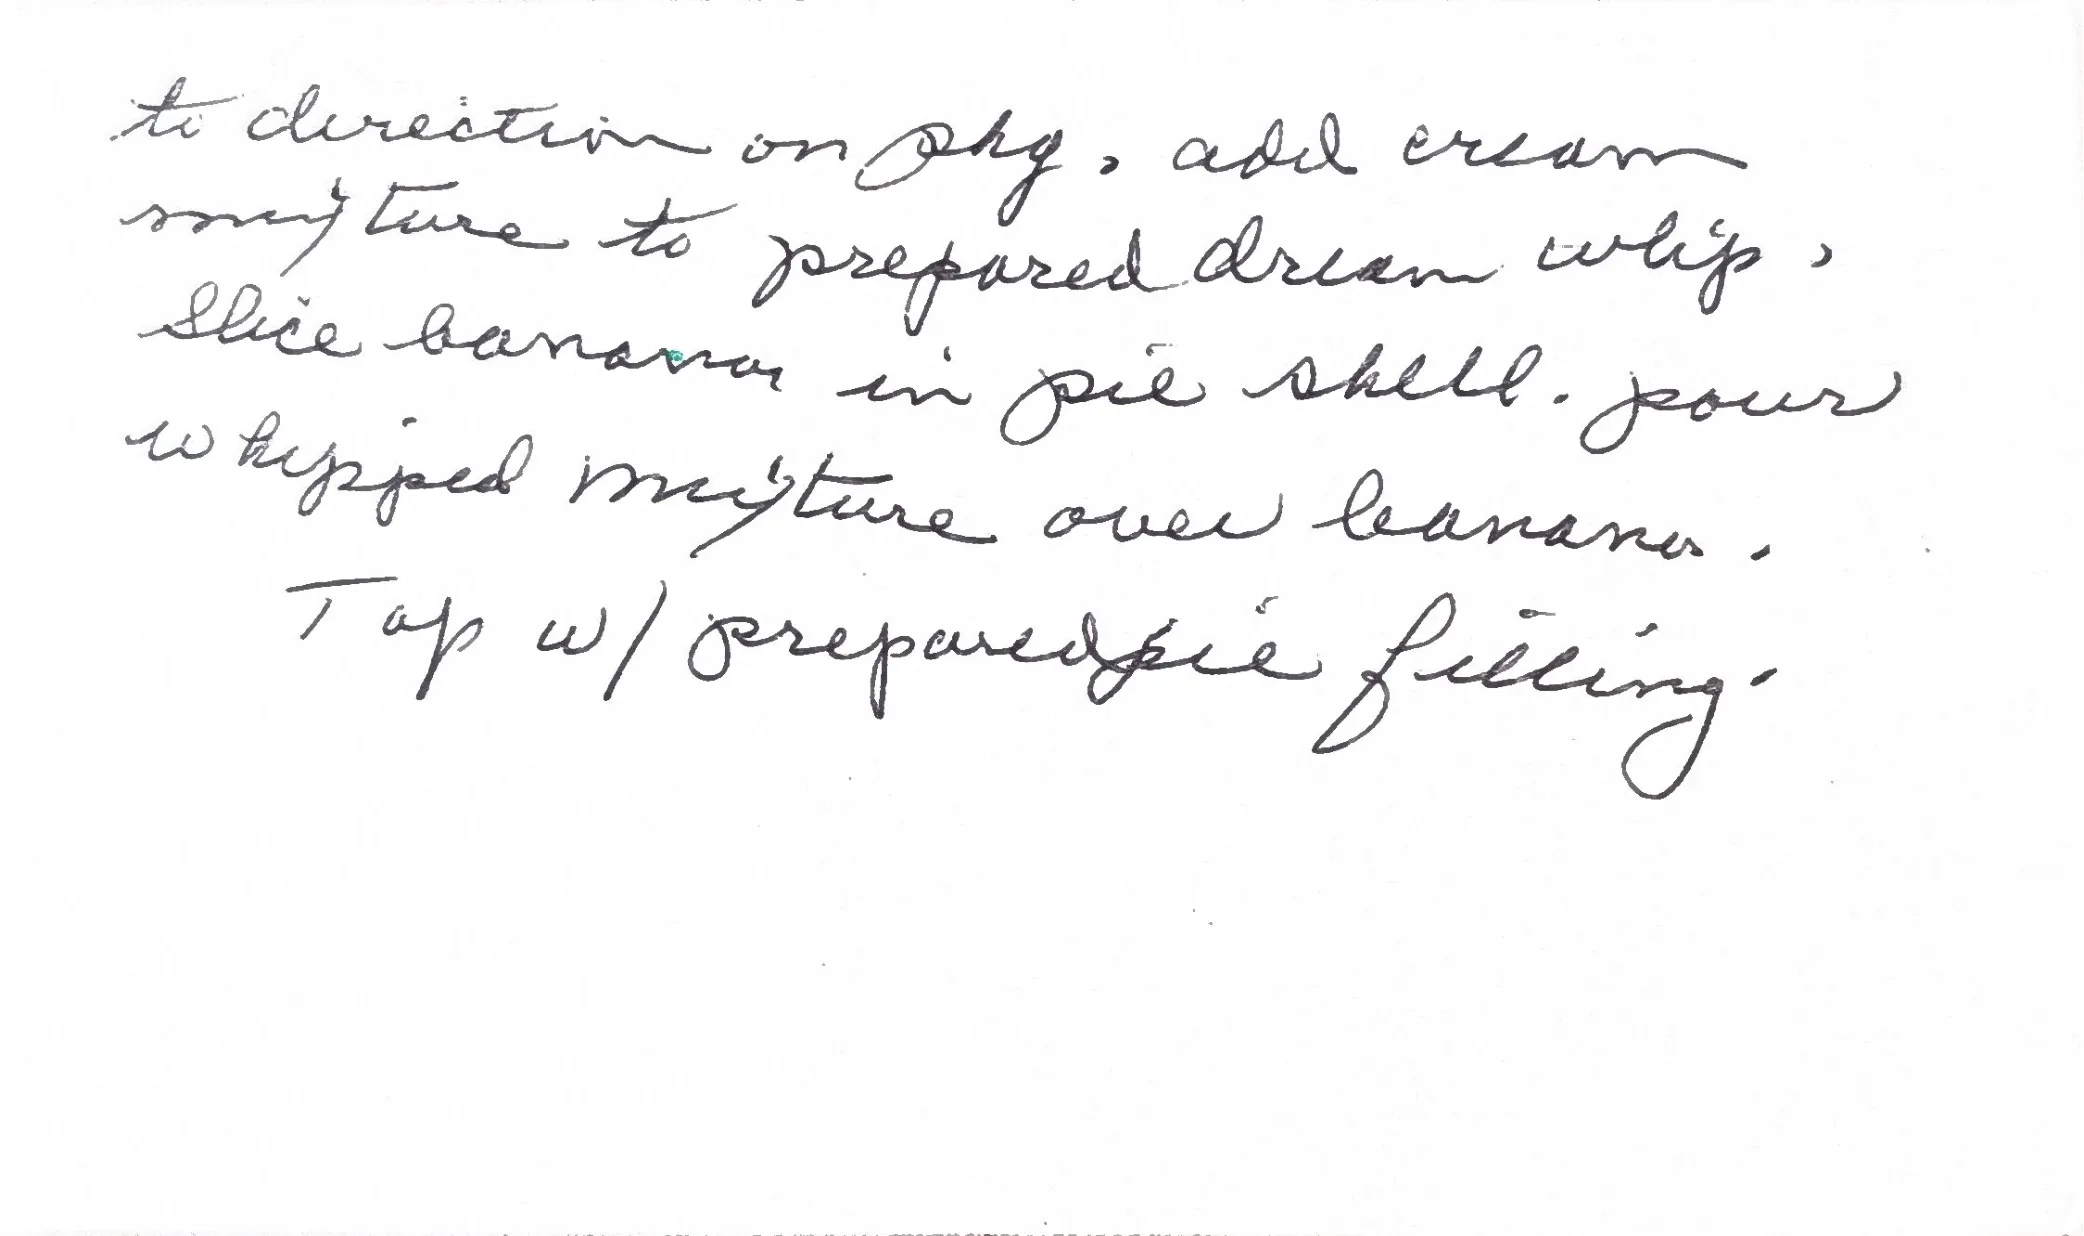 to direction on pkg. add cream
mixture to prepared dream whip.
Slice bananas in pie shell. pour
whipped mixture over bananas.
Top w/ prepared pie filling.